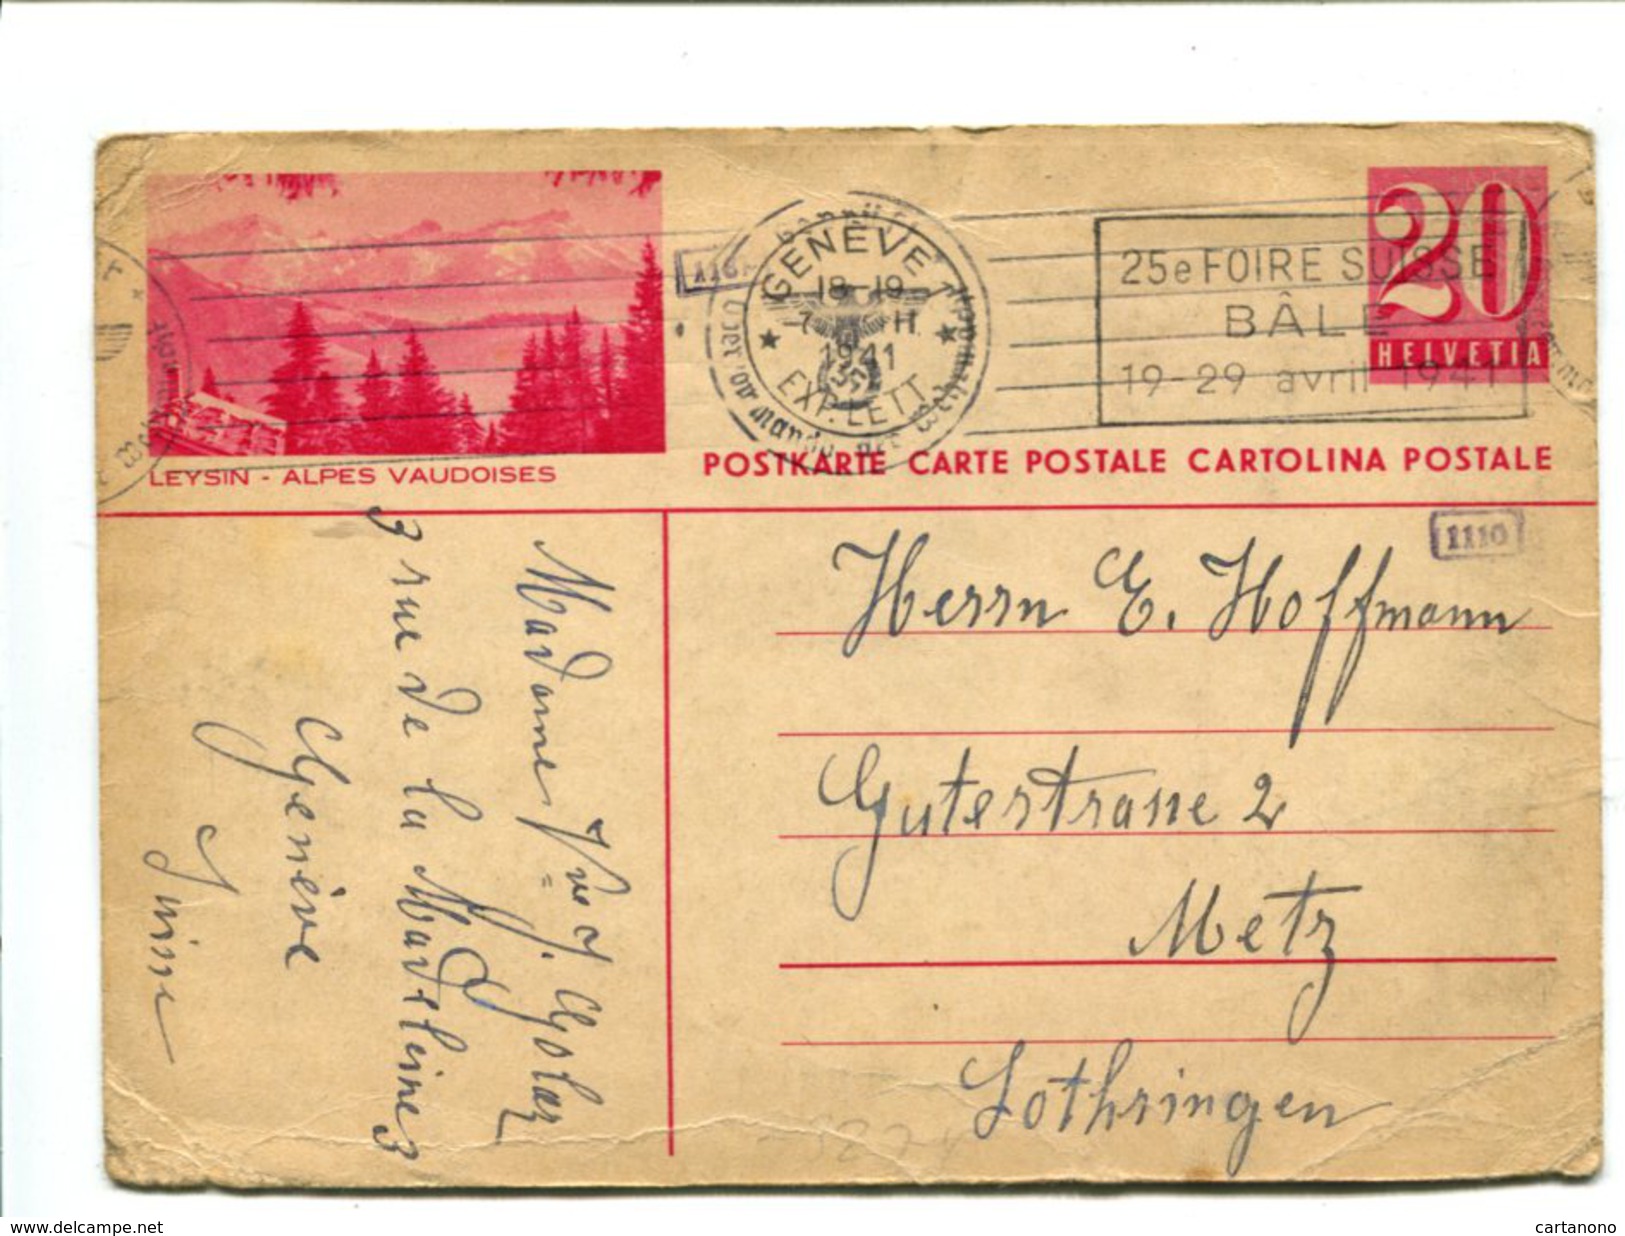 GENÈVE 1
18-19
1941
EXP. LETT.
Oberkommando der Wehrmacht
25e FOIRE SUISSE
BÂLE
19-29 avril 1941
20
HELVETIA
LEYSIN - ALPES VAUDOISES
POSTKARTE CARTE POSTALE CARTOLINA POSTALE
1110
Herrn E. Hoffmann
Gutestrasse 2
Metz
Lothringen
Madame Vve J. Golaz
3 rue de la Madeleine 3
Genève
Suisse
www.delcampe.net
cartanono